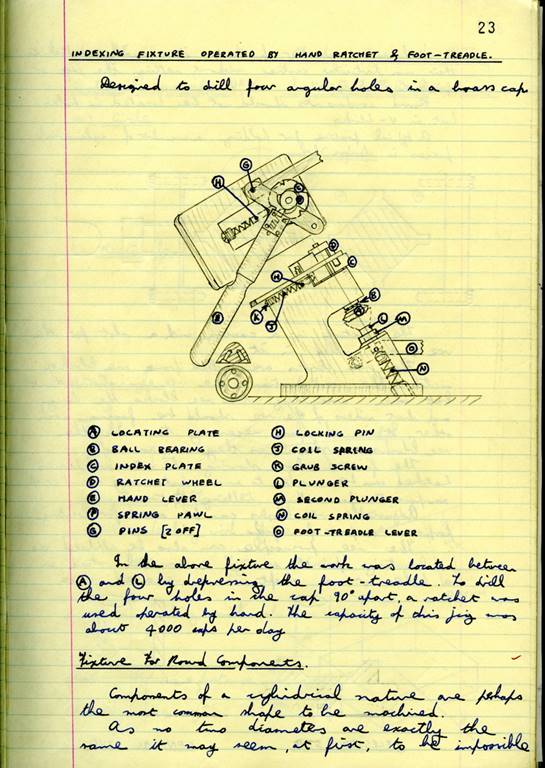 23
INDEXING FIXTURE OPERATED BY HAND RATCHET & FOOT-TREADLE.
Designed to drill four angular holes in a brass cap
G
H
C
D
D
C
H
B
K
J
A
L
M
E
O
N
A LOCATING PLATE
B BALL BEARING
C INDEX PLATE
D RATCHET WHEEL
E HAND LEVER
F SPRING PAWL
G PINS [2 OFF]
H LOCKING PIN
J COIL SPRING
K GRUB SCREW
L PLUNGER
M SECOND PLUNGER
N COIL SPRING
O FOOT-TREADLE LEVER
In the above fixture the work was located between
A and L by depressing the foot-treadle. To drill
the four holes in the cap 90° apart, a ratchet was
used operated by hand. The capacity of this jig was
about 4000 caps per day
Fixture For Round Components.
Components of a cylindrical nature are perhaps
the most common shape to be machined.
As no two diameters are exactly the
same it may seem, at first, to be impossible